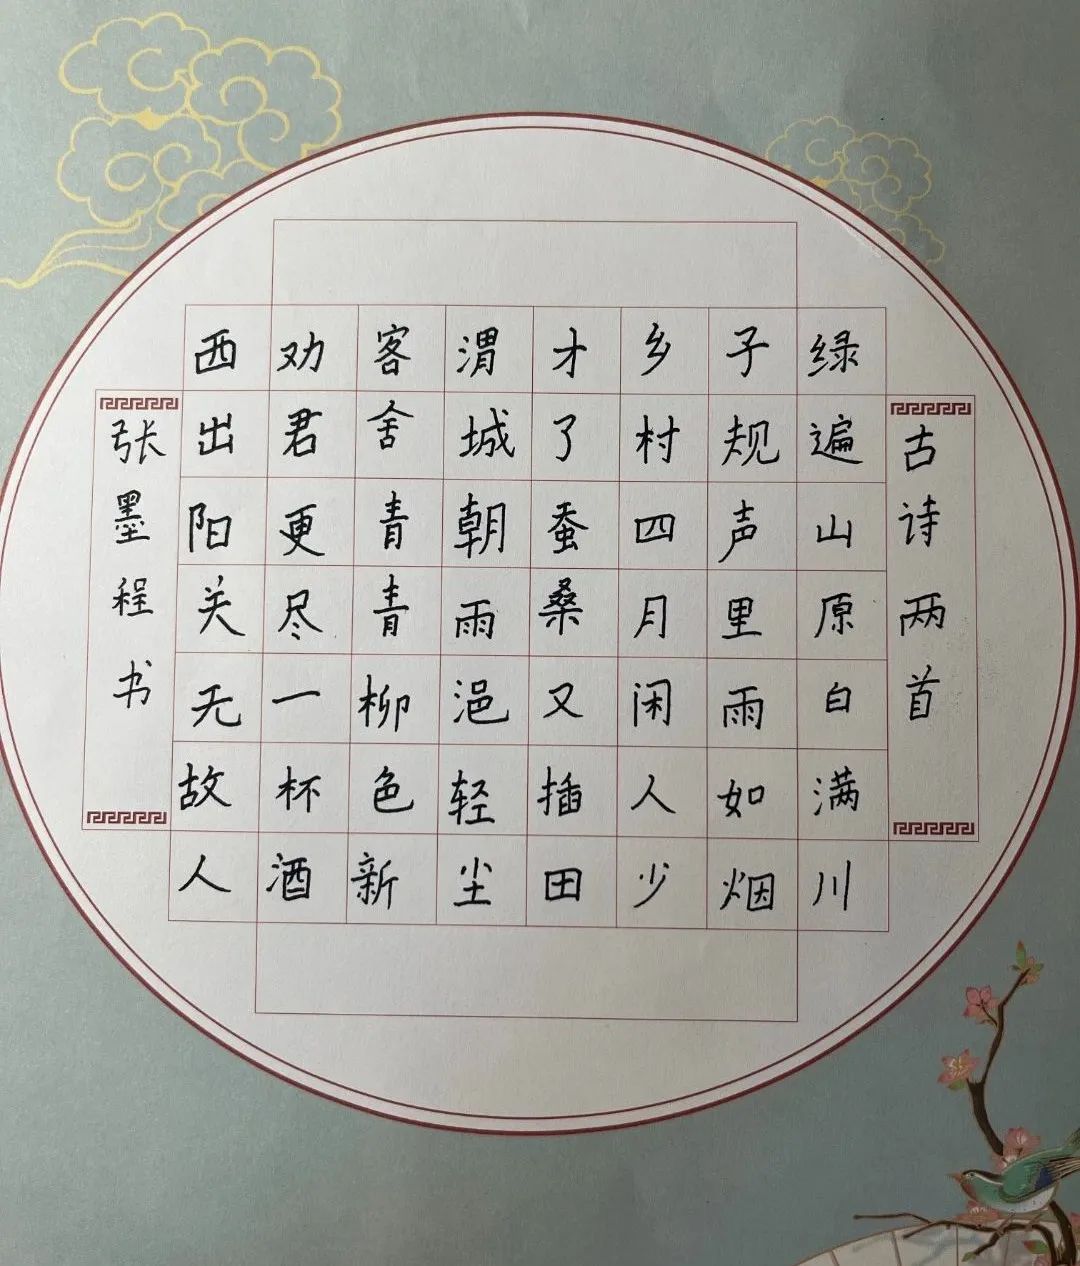 古诗两首
绿遍山原白满川
子规声里雨如烟
乡村四月闲人少
才了蚕桑又插田
渭城朝雨浥轻尘
客舍青青柳色新
劝君更尽一杯酒
西出阳关无故人
张墨程书